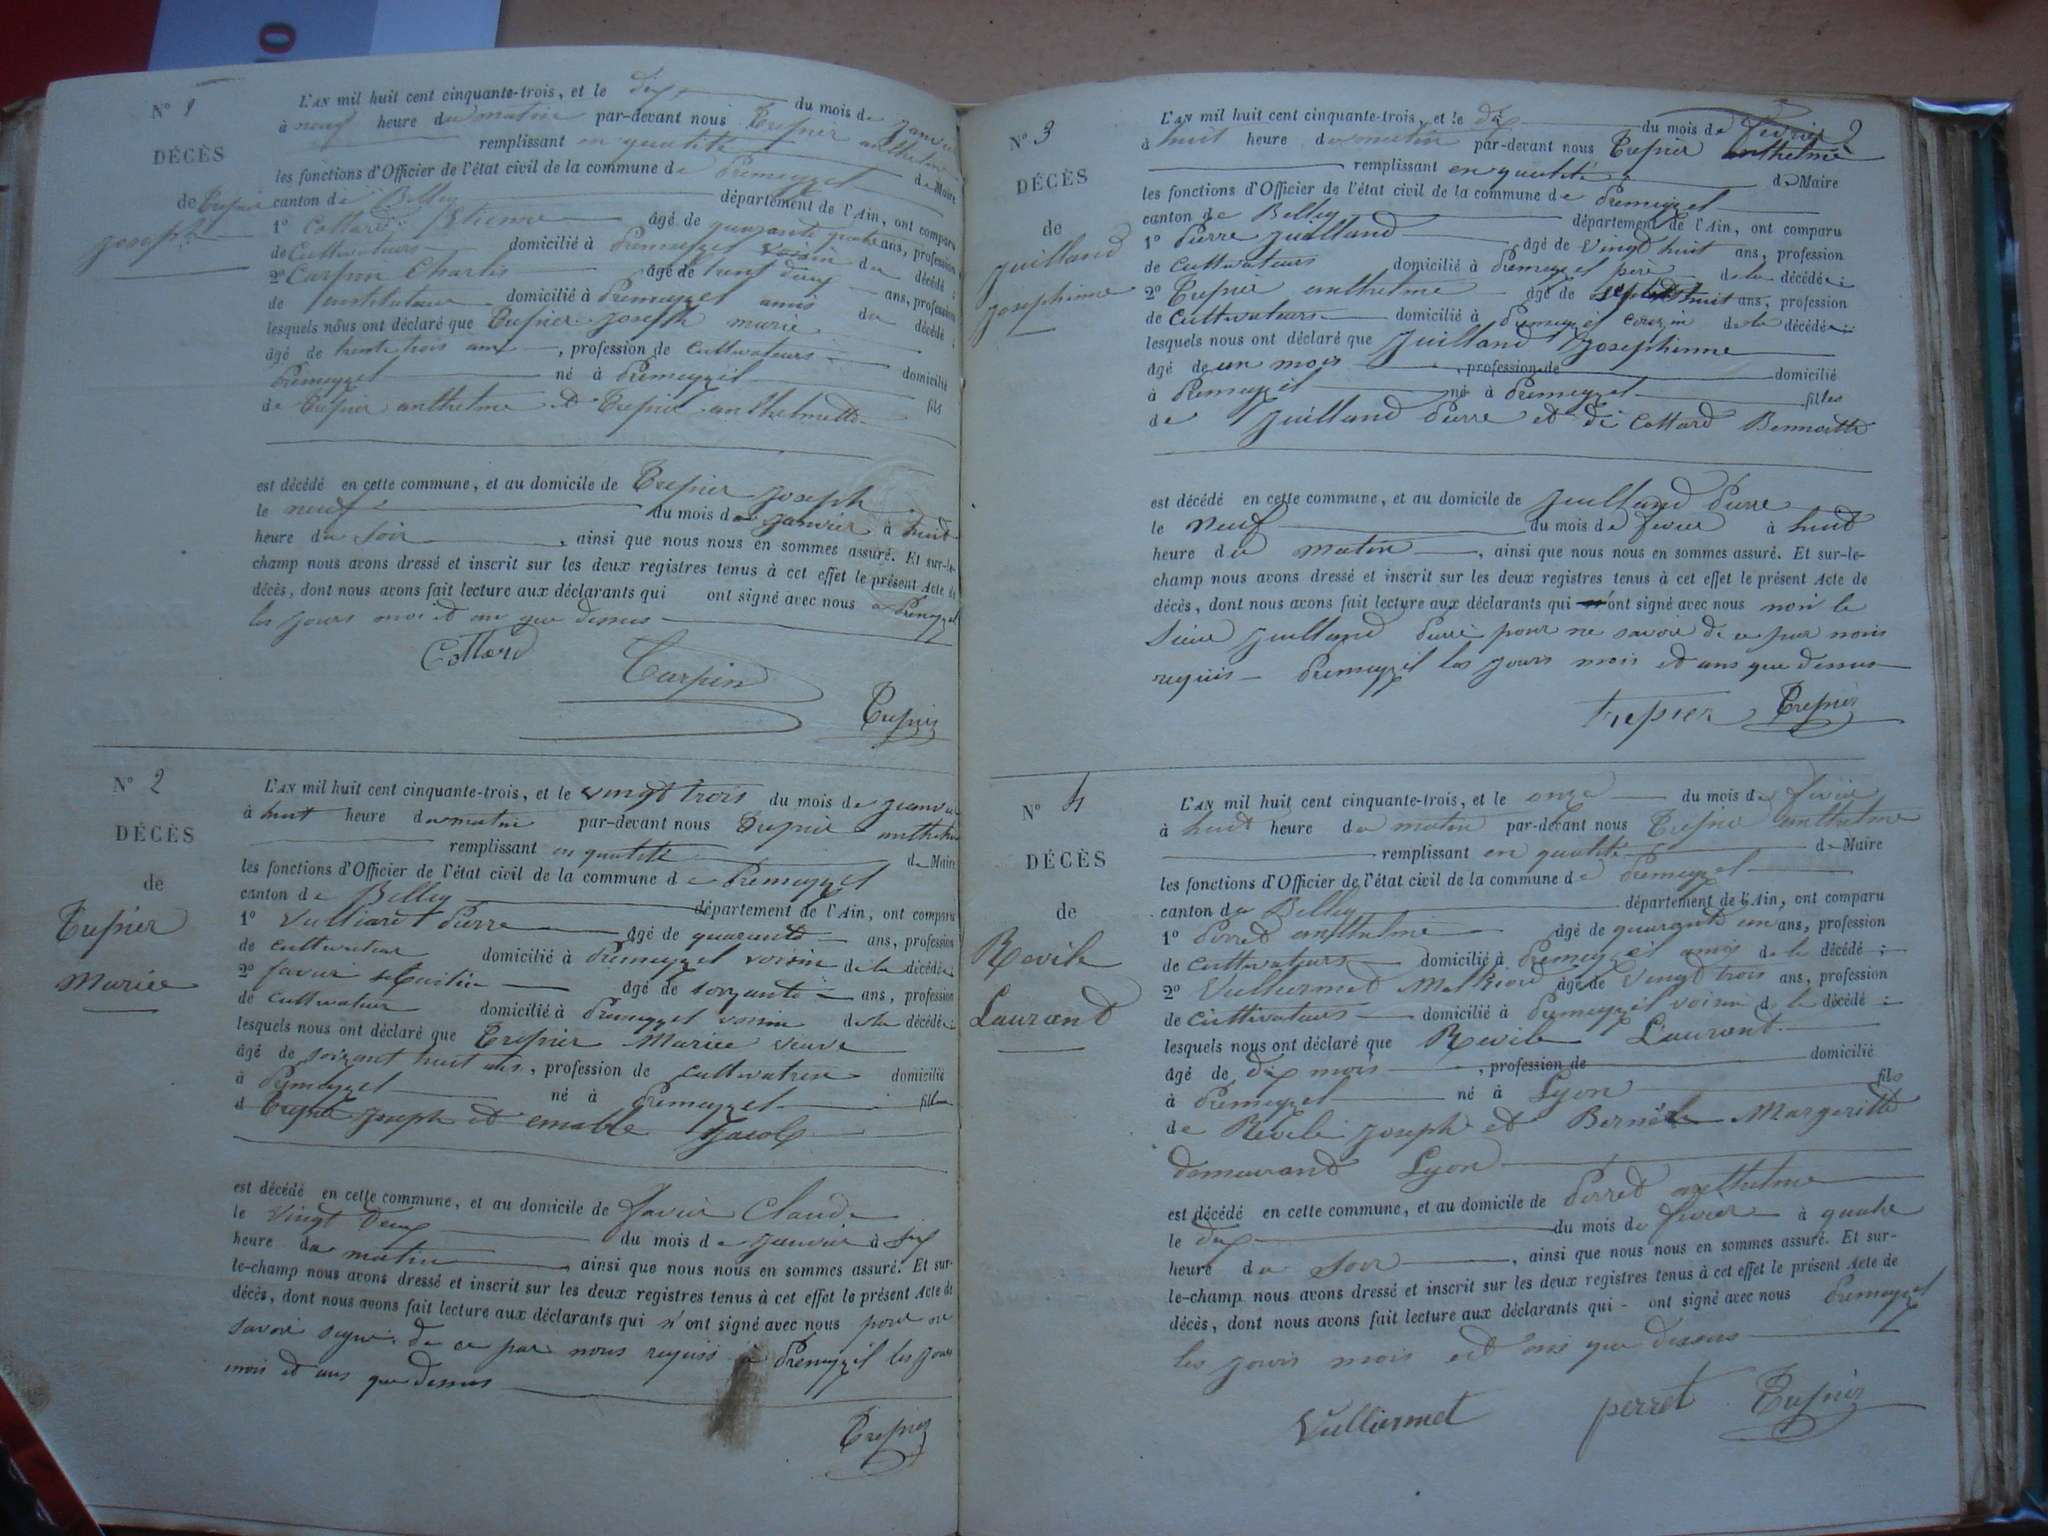 N° 1
DÉCÈS
de Trepier
Joseph
L'AN mil huit cent cinquante-trois, et le dix du mois de janvier
à neuf heure du matin par-devant nous Trepier anthelme
remplissant en qualité de Maire
les fonctions d'Officier de l'état civil de la commune de Premeyzel
canton de Belley département de l'Ain, ont comparu
1° Cottard Etienne âgé de quarante quatre ans, profession
de Cultivateurs domicilié à Premeyzel voisin du décédé;
2° Carpin Charles âgé de trent deux ans, profession
de instituteur domicilié à Premeyzel amis du décédé;
lesquels nous ont déclaré que Trepier Joseph marie
âgé de trente trois ans, profession de Cultivateurs domicilié
Premeyzel né à Premeyzel fils
de Trepier anthelme et Trepier anthelmette
est décédé en cette commune, et au domicile de Trepier Joseph
le neuf du mois de janvier à huit
heure du soir, ainsi que nous nous en sommes assuré. Et sur-le-
champ nous avons dressé et inscrit sur les deux registres tenus à cet effet le présent Acte de
décès, dont nous avons fait lecture aux déclarants qui ont signé avec nous à Premeyzel
les jours mois et an que dessus
Cottard Carpin Trepier
N° 2
DÉCÈS
de
Trepier
Mariée
L'AN mil huit cent cinquante-trois, et le vingt trois du mois de janvier
à huit heure du matin par-devant nous Trepier anthelme
remplissant en qualité de Maire
les fonctions d'Officier de l'état civil de la commune de Premeyzel
canton de Belley département de l'Ain, ont comparu
1° Vulliaret Pierre âgé de quarante ans, profession
de cultivateur domicilié à Premeyzel voisin de la décédée;
2° Favier âgé de soixante ans, profession
de cultivateur domicilié à Premeyzel voisin de la décédée;
lesquels nous ont déclaré que Trepier Mariée veuve
âgé de soixant huit ans, profession de cultivatrice domicilié
à Premeyzel né à Premeyzel fille
d Trepié Joseph et emable Jacob
est décédé en cette commune, et au domicile de Favier Claude
le vingt deux du mois de janvier à six
heure du matin, ainsi que nous nous en sommes assuré. Et sur-
le-champ nous avons dressé et inscrit sur les deux registres tenus à cet effet le présent Acte de
décès, dont nous avons fait lecture aux déclarants qui n'ont signé avec nous pour ne
savoir signé de ce par nous requis à Premeyzel les jours
mois et ans que dessus
Trepier
2
N° 3
DÉCÈS
de
Juilland
Josephinne
L'AN mil huit cent cinquante-trois, et le dix du mois de fevrier
à huit heure du matin par-devant nous Trepier anthelme
remplissant en qualité de Maire
les fonctions d'Officier de l'état civil de la commune de Premeyzel
canton de Belley département de l'Ain, ont comparu
1° Pierre Juilland âgé de vingt huit ans, profession
de cultivateurs domicilié à Premeyzel pere de la décédée;
2° Trepier anthelme âgé de huit ans, profession
de cultivateurs domicilié à Premeyzel de la décédée;
lesquels nous ont déclaré que Juilland Josephinne
âgé de un mois, profession de domicilié
à Premeyzel né à Premeyzel filles
de Juilland Pierre et de Cottard Bennoitte
est décédé en cette commune, et au domicile de Juilland Pierre
le neuf du mois de fevrier à huit
heure du matin, ainsi que nous nous en sommes assuré. Et sur-le-
champ nous avons dressé et inscrit sur les deux registres tenus à cet effet le présent Acte de
décès, dont nous avons fait lecture aux déclarants qui ont signé avec nous non le
sieur Juilland Pierre pour ne savoir de ce par nous
requis Premeyzel les jours mois et ans que dessus
trepier Trepier
N° 4
DÉCÈS
de
Revile
Laurent
L'AN mil huit cent cinquante-trois, et le onze du mois de fevrier
à huit heure du matin par-devant nous Trepier anthelme
remplissant en qualité de Maire
les fonctions d'Officier de l'état civil de la commune de Premeyzel
canton de Belley département de l'Ain, ont comparu
1° Perret anthelme âgé de quarante un ans, profession
de cultivateurs domicilié à Premeyzel amis de le décédé;
2° Vulliermet Melkiore âgé de vingt trois ans, profession
de cultivateurs domicilié à Premeyzel voisin d le décédé;
lesquels nous ont déclaré que Revile Laurent
âgé de dix mois, profession de domicilié
à Premeyzel né à Lyon fils
de Revile Joseph et Margeritte
demeurand Lyon
est décédé en cette commune, et au domicile de Perret anthelme
le dix du mois de fevrier à quatre
heure du soir, ainsi que nous nous en sommes assuré. Et sur-
le-champ nous avons dressé et inscrit sur les deux registres tenus à cet effet le présent Acte de
décès, dont nous avons fait lecture aux déclarants qui ont signé avec nous Premeyzel
les jours mois et ans que dessus
Vulliermet perret Trepier